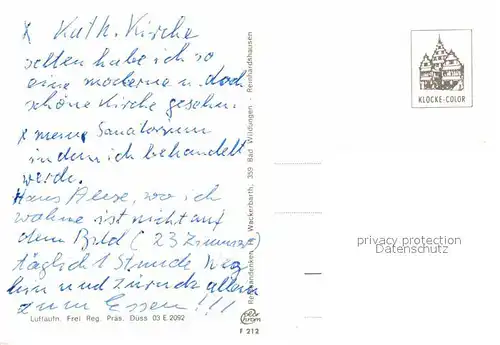 x Kath. Kirche
selten habe ich so
eine moderne u. doch
schöne Kirche gesehn.
x mein Sanatorium
indem ich behandelt
werde.
Haus Alise, wo ich
wohne ist nicht auf
dem Bild (23 Zimmer)
täglich 1 Stunde Weg
hin und zurück allein
zum Essen!!!
Luftaufn. Frei Reg. Präs. Düss 03 E 2092
F 212
Reiseandenken Weckerbarth, 359 Bad Wildungen - Reinhardshausen
KLOCKE-COLOR
privacy protection
Datenschutz